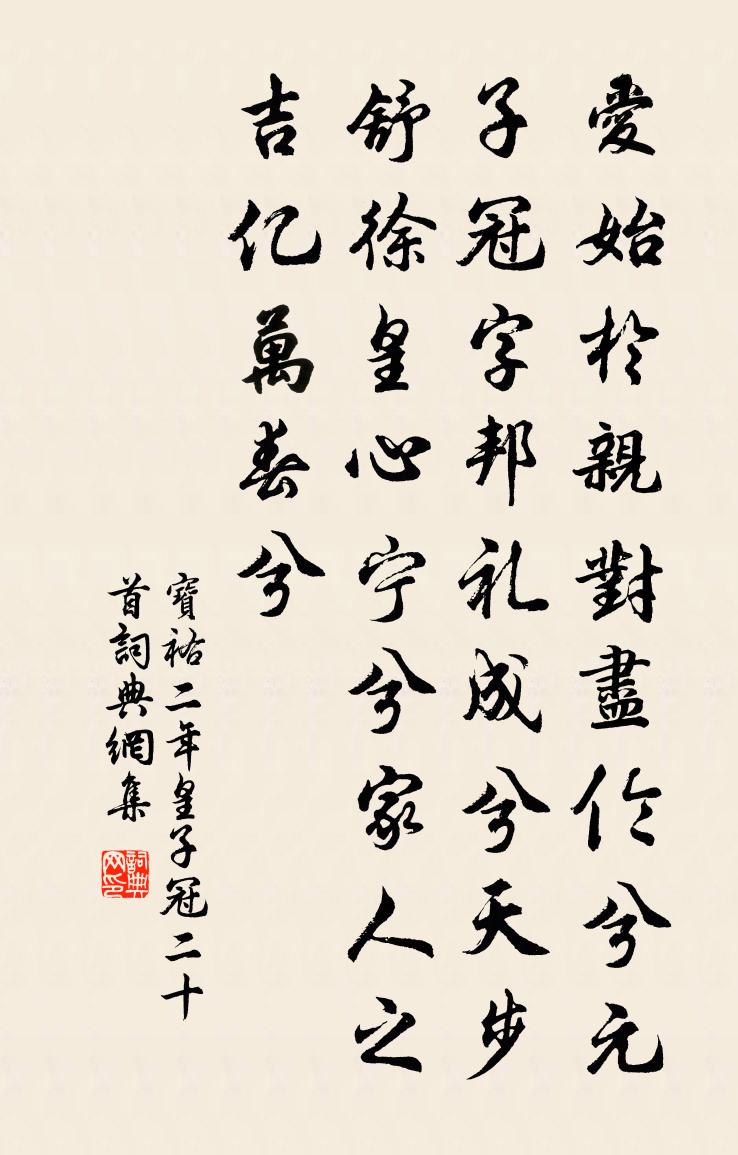 愛始於親對盡伦兮元
子冠字邦礼成兮天步
舒徐皇心宁兮家人之
吉亿萬春兮
寶祐二年皇子冠二十
首詞典網集
詞典
网印